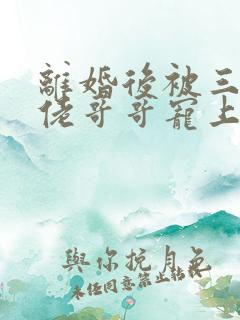 離婚後被三
佬哥哥寵上
與你挽月色
未任同意禁止轉載